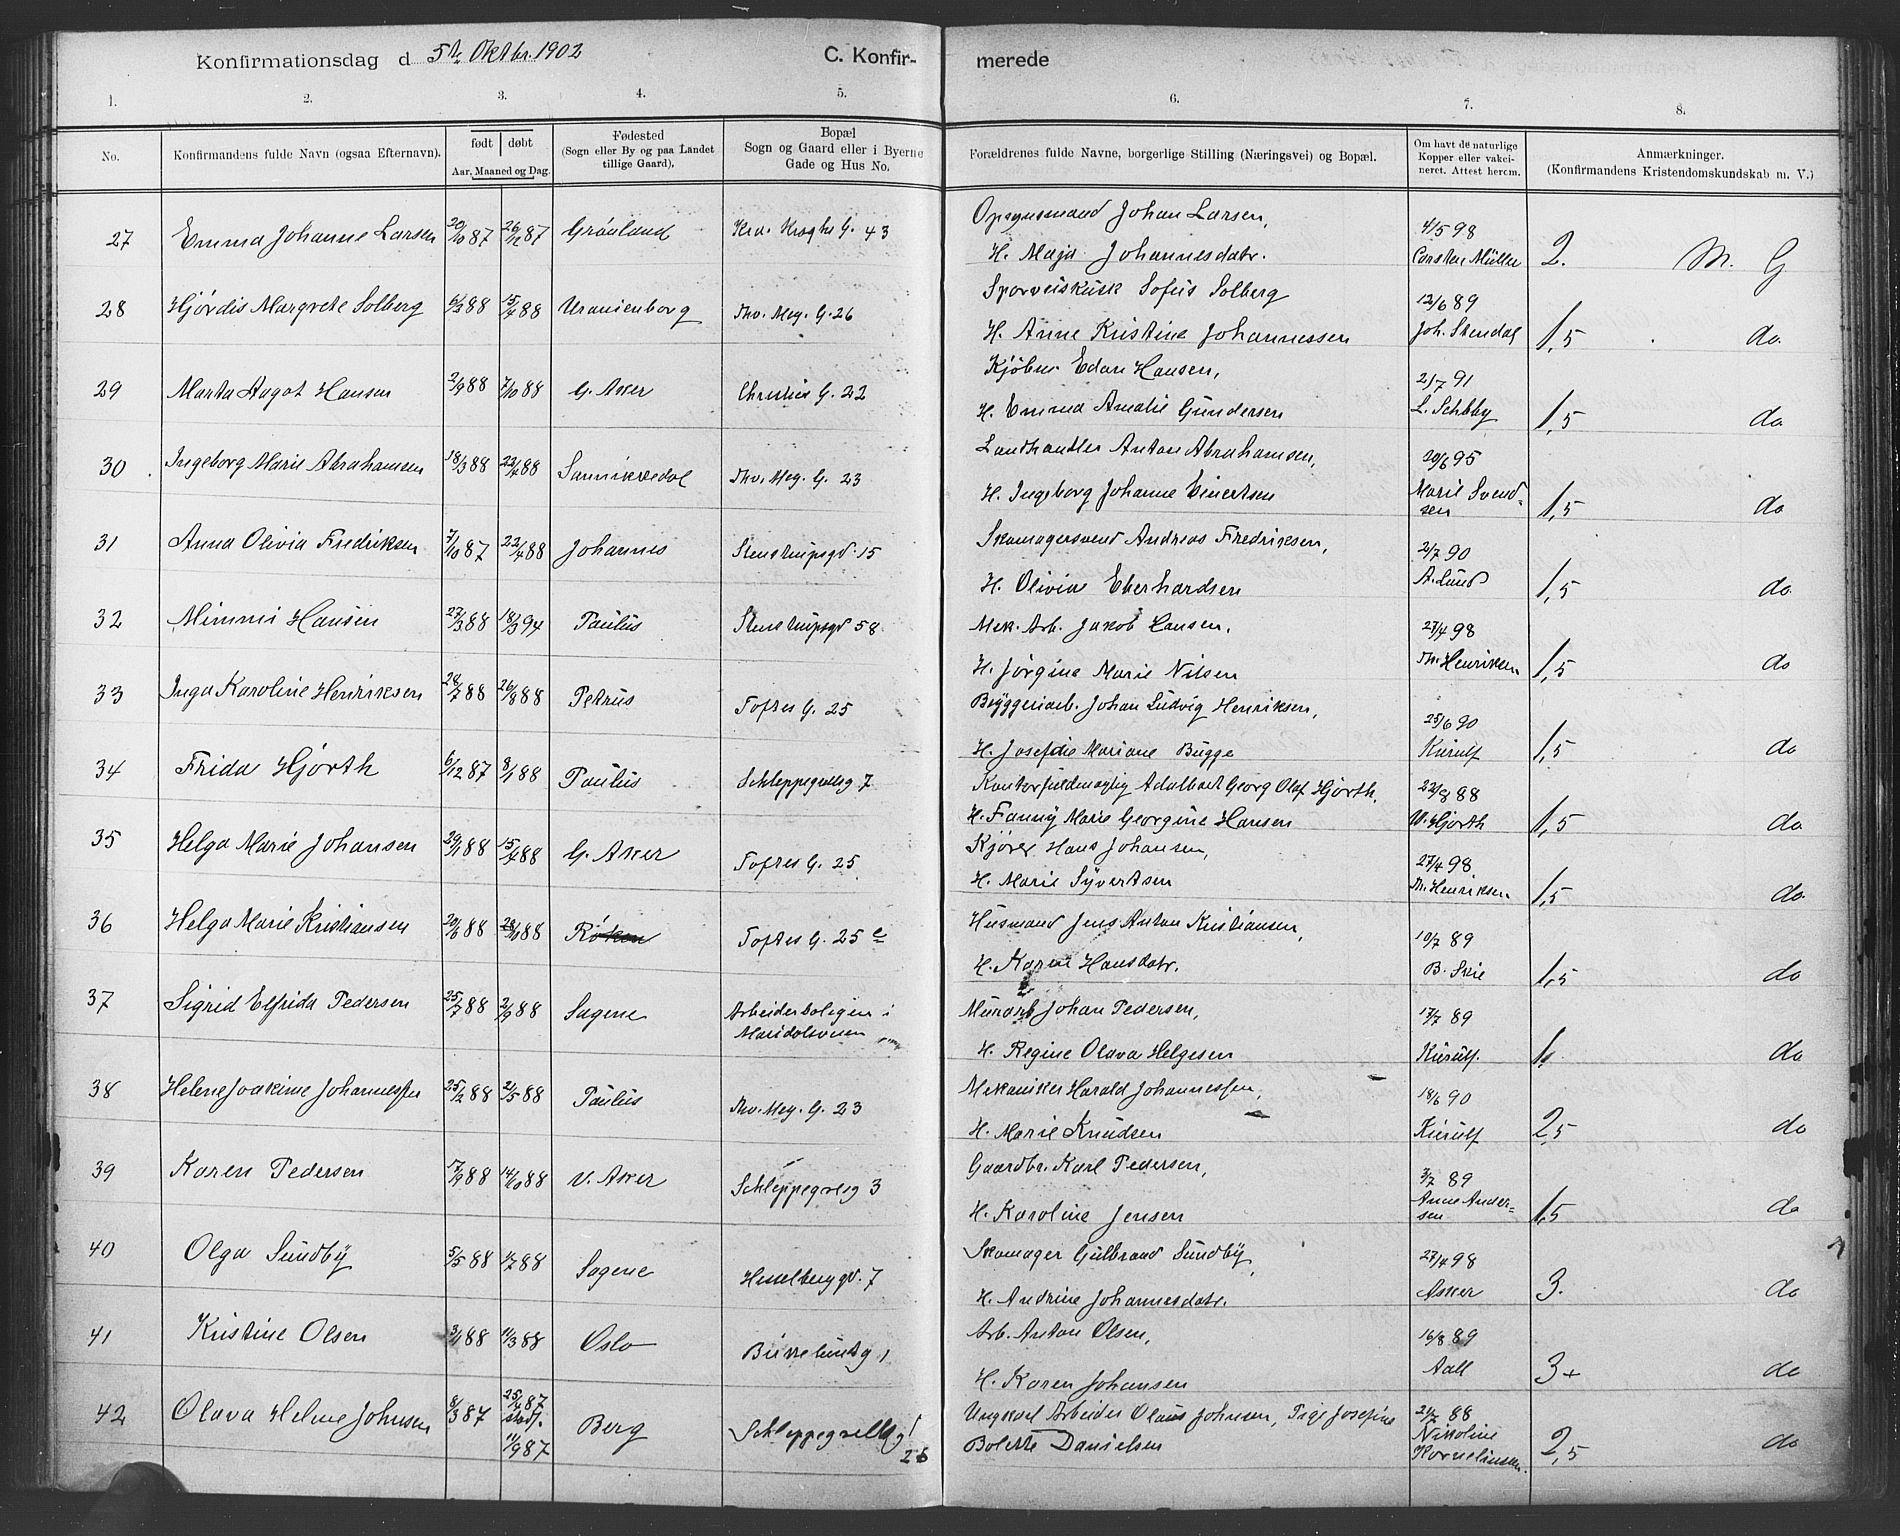 Konfirmationsdag d 5te Oktbr. 1902 C. Konfir- merede
1. 2. 3. 4. 5. 6. 7. 8.
No. Konfirmandens fulde Navn (ogsaa Efternavn). født døbt Aar, Maaned og Dag. Fødested (Sogn eller By og paa Landet tillige Gaard). Bopæl Sogn og Gaard eller i Byerne Gade og Hus No. Forældrenes fulde Navne, borgerlige Stilling (Næringsvei) og Bopæl. Om havt de naturlige Kopper eller vakcineret. Attest herom. Anmærkninger. (Konfirmandens Kristendomskundskab m. V.)
27 Emma Johanne Larsen 20/10 87 26/12 87 Grønland Kra. Kroghs G. 43 Opsynsmand Johan Larsen, 4/5 98
H. Maja Johannesdatr. Carsten Müller 2. M. G
28 Hjørdis Margrete Solberg 6/3 88 15/4 88 Uranienborg Thv. Mey. G. 26 Sporveiskusk Sofus Solberg 12/6 89
H. Anne Kristine Johannessen Joh. Stendal 1,5 do
29 Marta Aagot Hansen 2/9 88 7/10 88 G. Aker Christies G. 22 Kjøbm. Edan Hansen, 2/7 91
H. Emma Amalie Gundersen 1,5 do
30 Ingeborg Marie Abrahamsen 18/3 88 22/4 88 Sannikedal Thv. Mey. G. 23 Landhandler Anton Abrahamsen, 20/6 95
H. Ingeborg Johanne Einertsen Marie Svend-
sen 1,5 do
31 Anna Olivia Fredriksen 7/10 87 22/4 88 Johannes Stenstrupsgd 15 Skomagersvend Andreas Fredriksen, 2/7 90
H. Olivia Eberhardsen A. Lund 1,5 do
32 Mimmi Hansen 27/3 88 18/3 94 Paulus Stenstrupsgd 58 Mek. Arb. Jakob Hansen, 27/4 98
H. Jørgine Marie Nilsen Th. Henriksen 1,5 do
33 Inga Karoline Henriksen 28/7 88 26/8 88 Petrus Toftes G. 25 Bryggeriarb. Johan Ludvig Henriksen, 25/6 90
H. Josefine Mariane Bugge Kierulf 1,5 do
34 Frida Hjorth 6/12 87 8/1 88 Paulus Schleppegrellsg 7 Kontorfuldmægtig Adalbert Georg Olaf Hjorth, 22/8 88
H. Fanny Marie Georgine Hansen W. Hjorth 1,5 do
35 Helga Marie Johansen 29/1 88 15/4 88 G. Aker Toftes G. 25 Kjører Hans Johansen, 27/4 98
H. Marie Syvertsen Th. Henriksen 1,5 do
36 Helga Marie Kristiansen 20/6 88 88 Røken Toftes G. 25 c Husmand Jens Anton Kristiansen, 10/7 89
H. Karen Hansdatr. B. Skie 1,5 do
37 Sigrid Elfrida Pedersen 25/7 88 2/9 88 Sagene Arbeiderboligen i Murarb Johan Pedersen, 17/7 89
Maridalsveien H. Regine Olava Helgesen Kierulf. 1. do
38 Helene Joakime Johannessen 25/2 88 21/5 88 Paulus Thv. Mey. G. 23 Mekaniker Harald Johannessen, 18/6 90
H. Marie Knudsen Kierulf 2,5 do
39 Karen Pedersen 17/9 88 14/10 88 V. Aker Schleppegrelsg 3 Gaardbr. Karl Pedersen, 3/7 89
H. Karoline Jensen Anne Ander-
sen 1,5 do
40 Olga Sundby 5/5 88 1/7 88 Sagene Hesselberggd. 7 Skomager Gulbrand Sundby, 27/4 98
H. Andrine Johannesdatr. Asker 3. do
41 Kristine Olsen 3/1 88 11/3 88 Oslo Birkelundg 1 Arb. Anton Olsen, 16/8 89
H. Karen Johansen Aall 3+ do
42 Olava Helene Johnsen 8/3 87 25/4 87 stadf. 11/9 87 Berg Schleppegrellsg 26 Ungkarl Arbeider Olaus Johnsen, Pige Josefine 21/7 88
Bolette Danielsen Nikoline
Korneliussen. 2,5 do